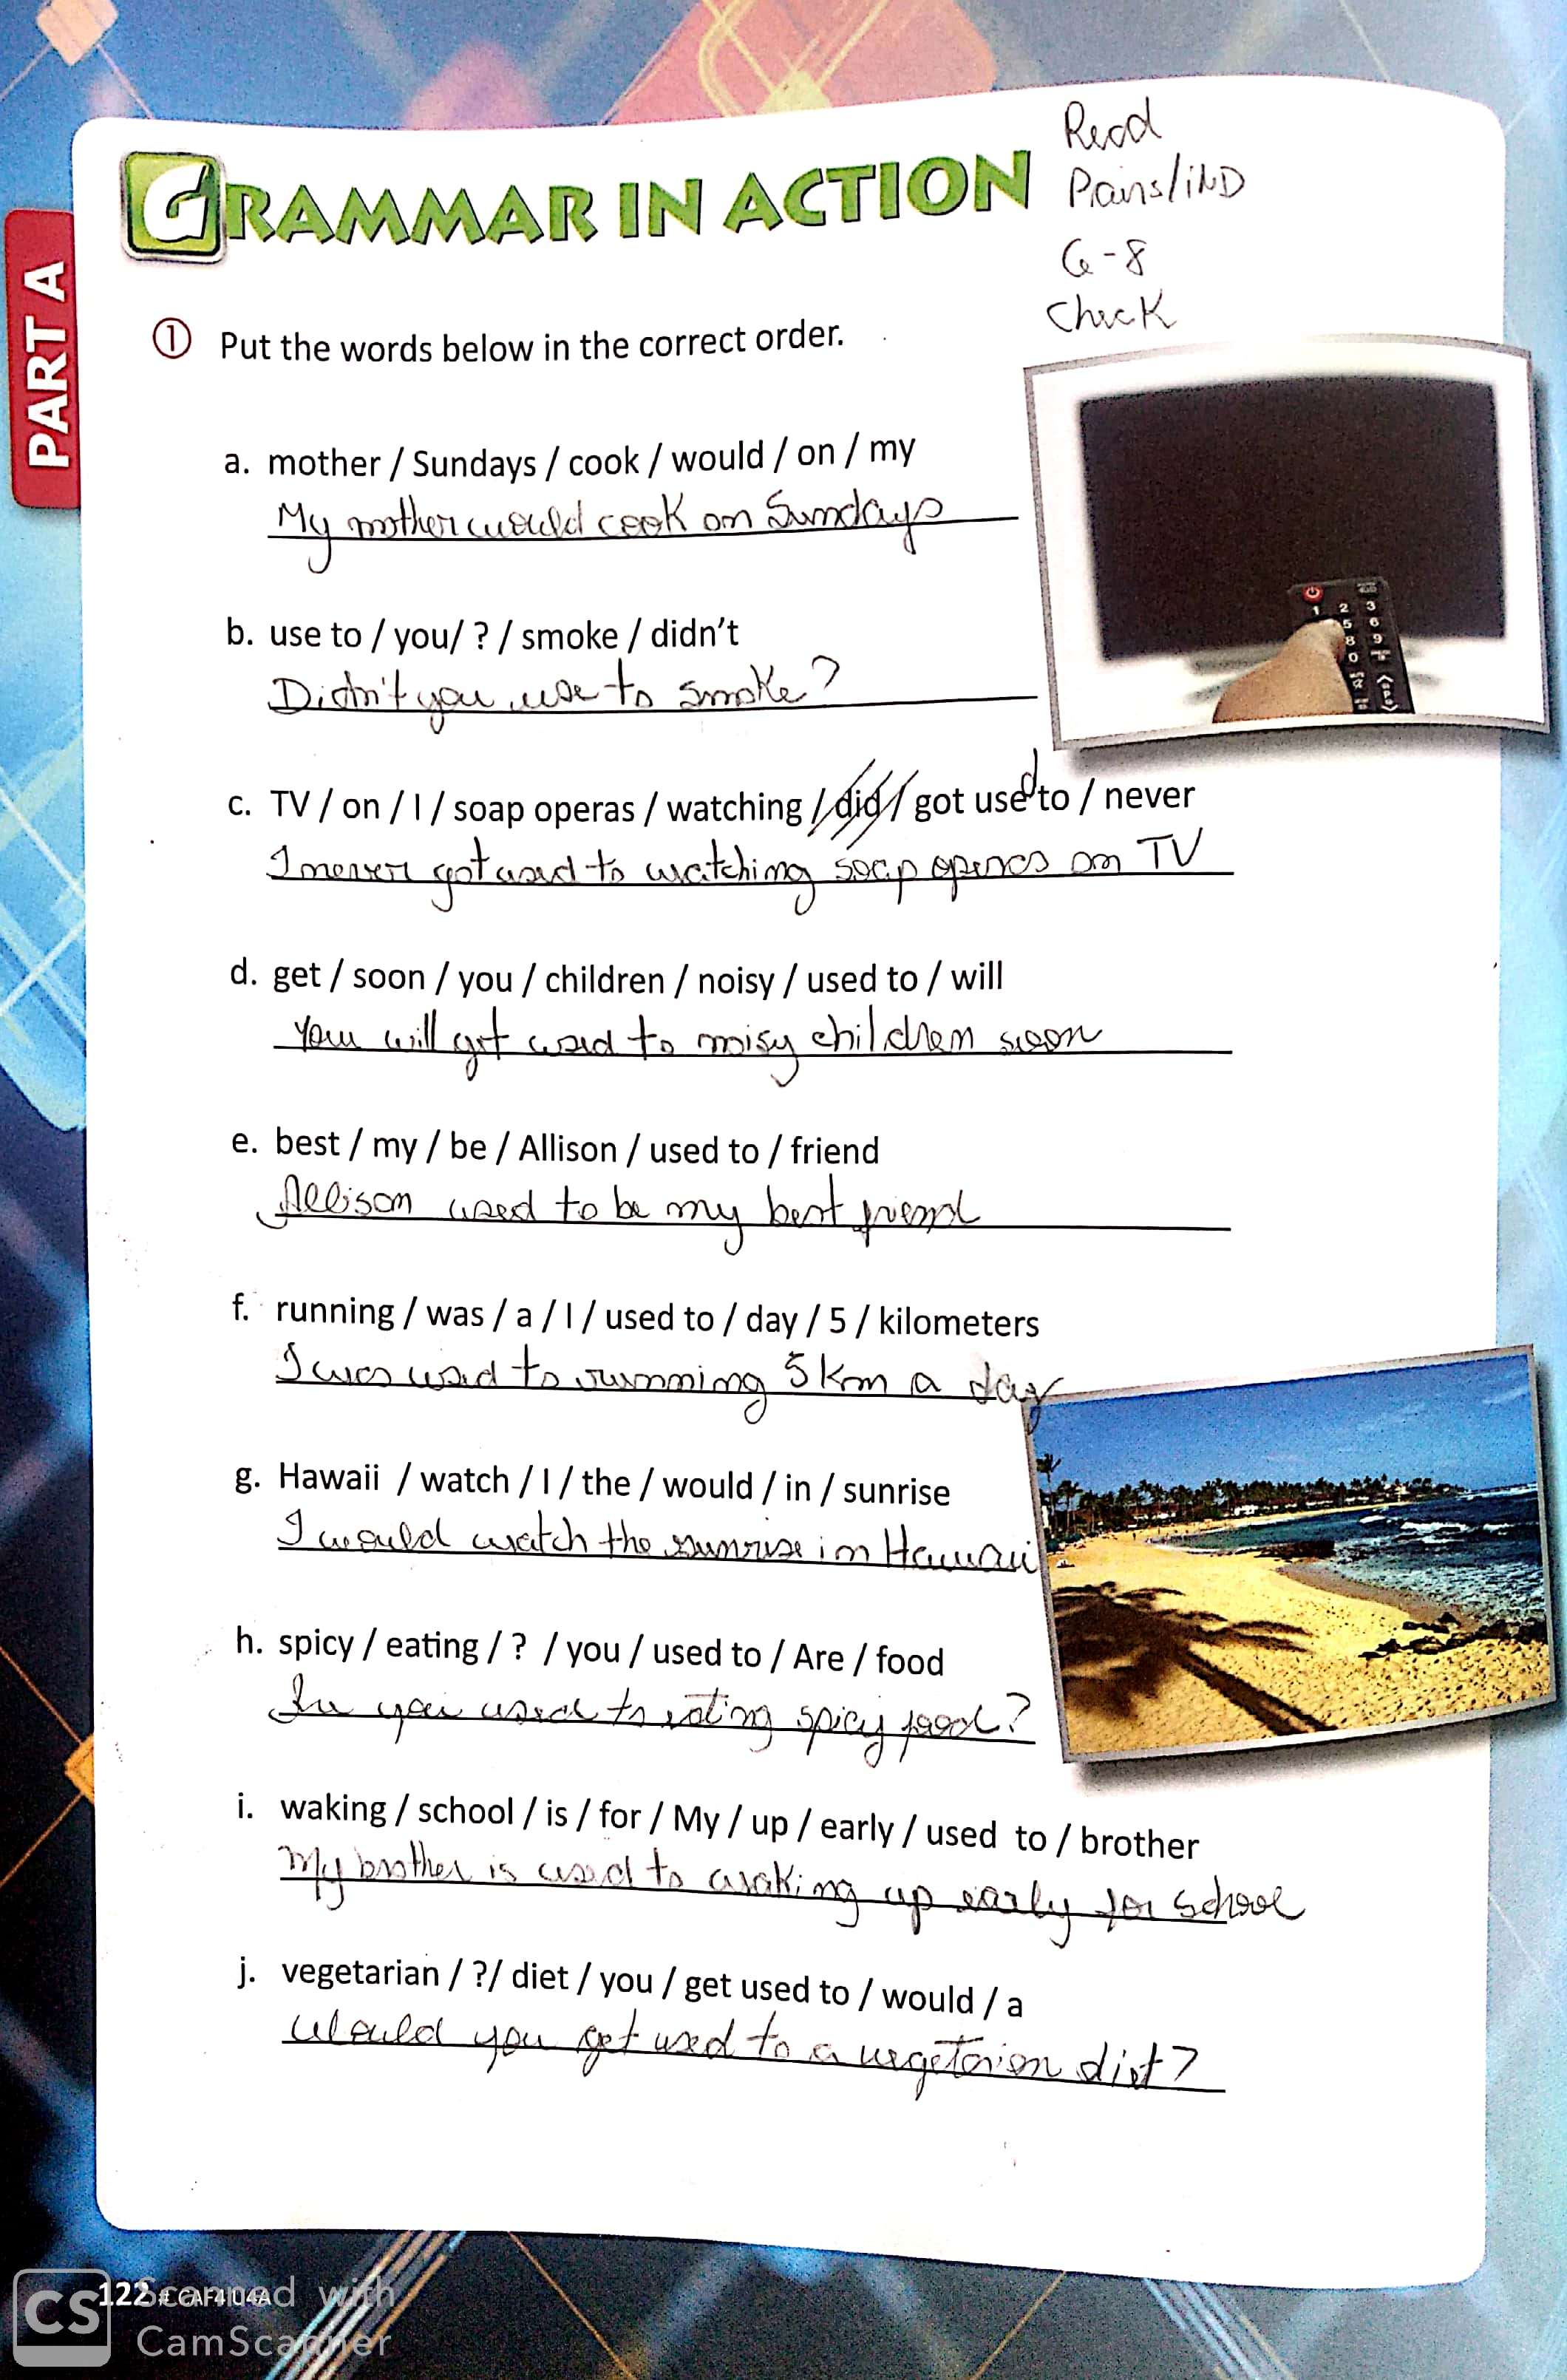 Read
Pairs/IND
6-8
Check
GRAMMAR IN ACTION
PART A
① Put the words below in the correct order.
a. mother / Sundays / cook / would / on / my
My mother would cook on Sundays
b. use to / you/ ? / smoke / didn't
Didn't you use to smoke?
c. TV / on / I / soap operas / watching / did / got used to / never
I never got used to watching soap operas on TV
d. get / soon / you / children / noisy / used to / will
You will get used to noisy children soon
e. best / my / be / Allison / used to / friend
Allison used to be my best friend
f. running / was / a / I / used to / day / 5 / kilometers
I was used to running 5 km a day
g. Hawaii / watch / I / the / would / in / sunrise
I would watch the sunrise in Hawaii
h. spicy / eating / ? / you / used to / Are / food
Are you used to eating spicy food?
i. waking / school / is / for / My / up / early / used to / brother
My brother is used to waking up early for school
j. vegetarian / ?/ diet / you / get used to / would / a
Would you get used to a vegetarian diet?
122
CS Scanned with
CamScanner